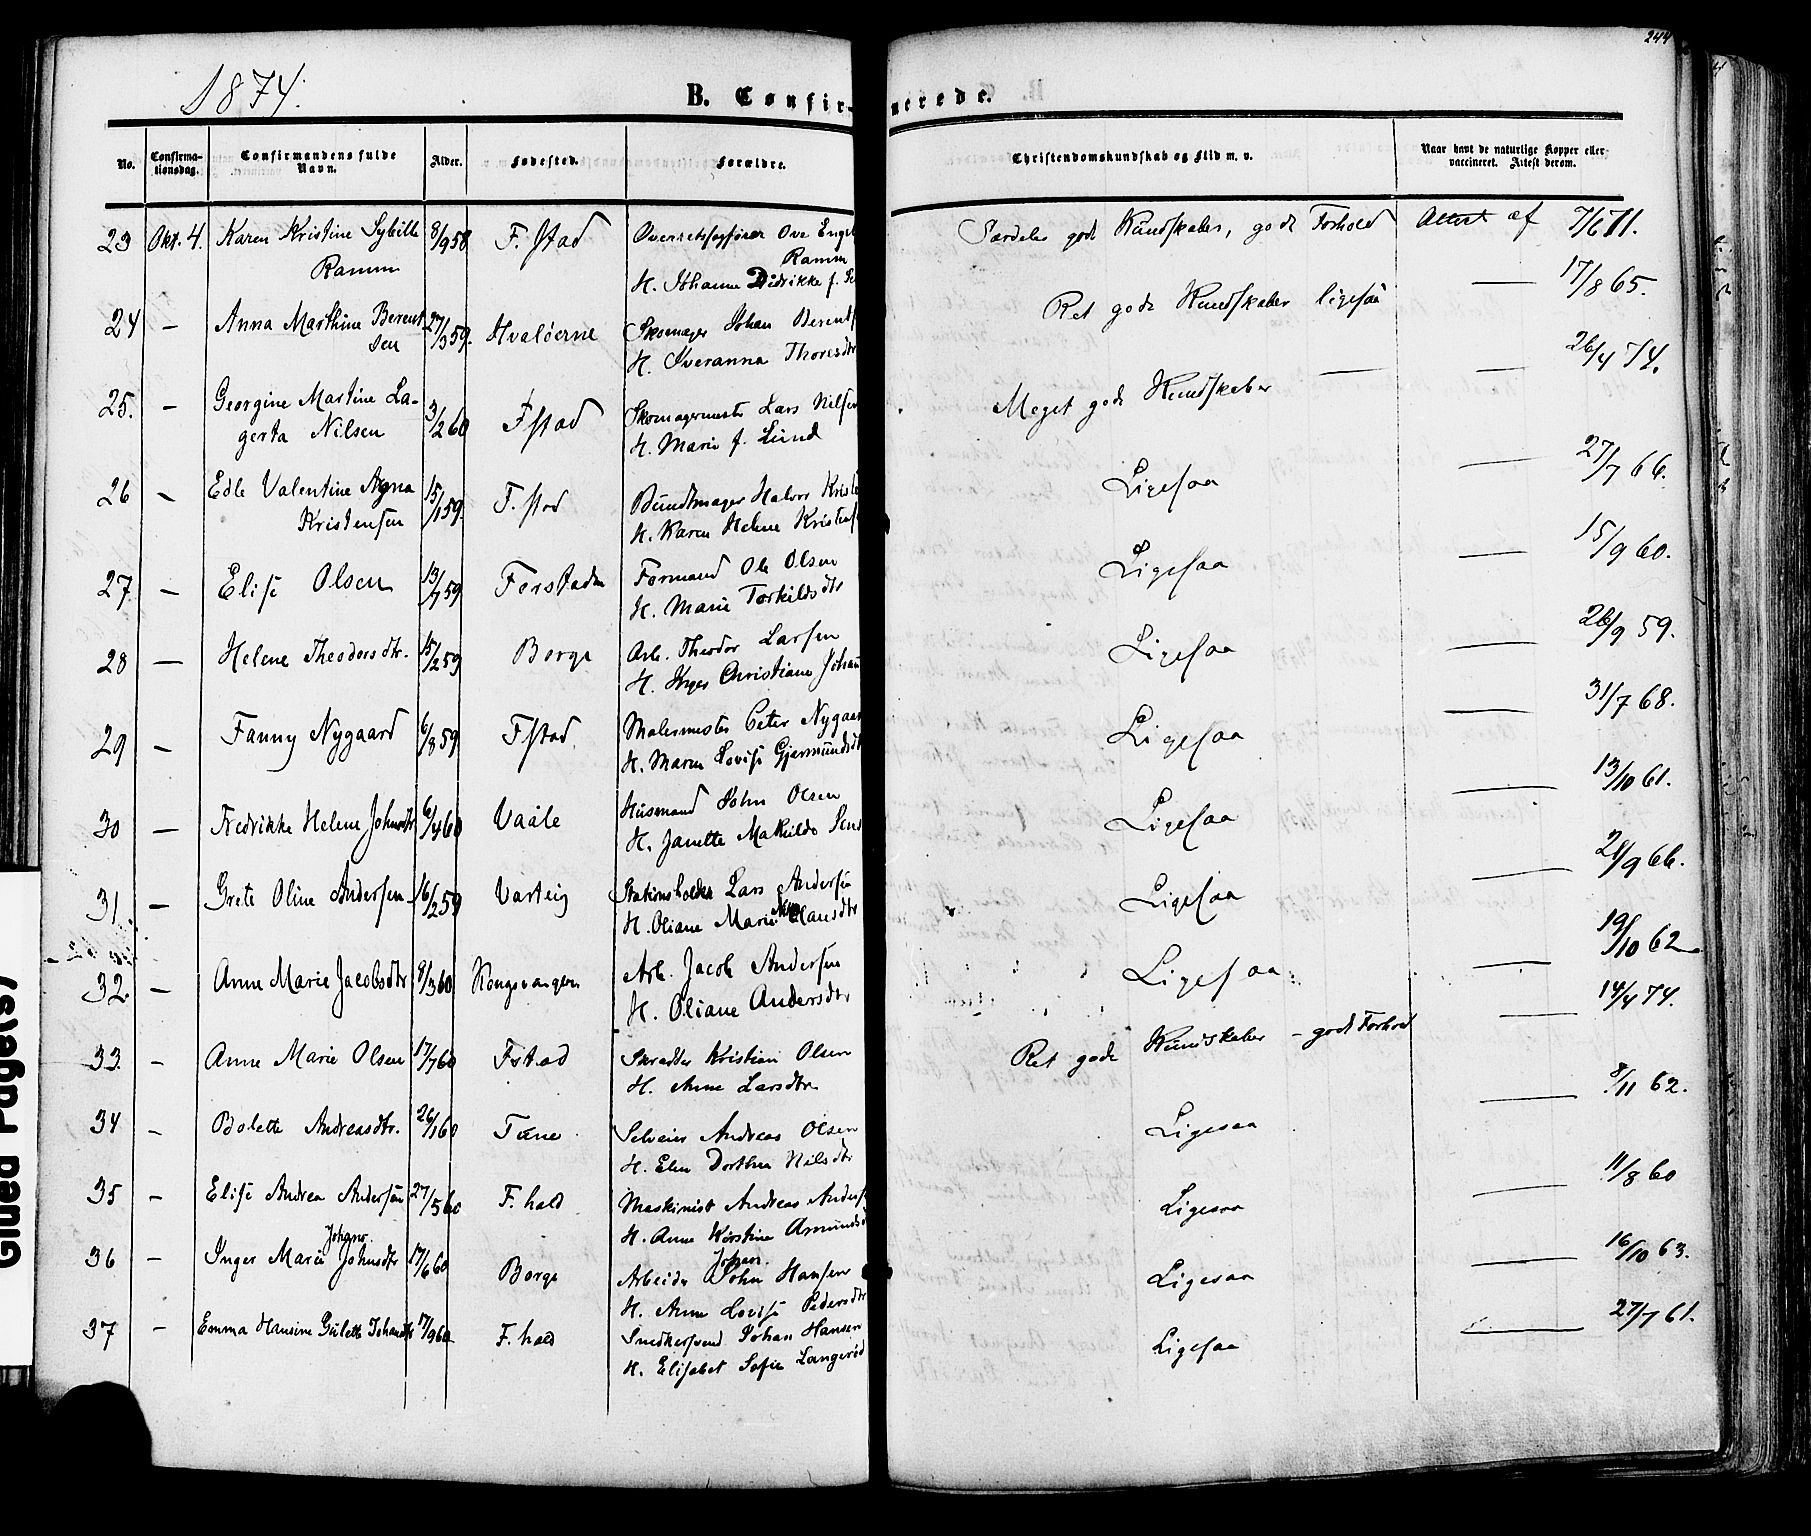 244
1874.
B. Confir-
merede.
No.
Confirma-
tionsdag.
Confirmandens fulde
Navn.
Alder.
Fødested.
Forældre.
Christendomskundskab og Flid m. v.
Naar havt de naturlige Kopper eller
vaccineret. Attest derom.
23 Okt. 4. Karen Kristine Sybille 8/9 58 F. stad Overretssagfører Ove Engel Særdeles gode Kundskaber, godt Forhold Attest af 7/6 71.
Ramm Ramm
H. Johanne Didrikke f.
24 — Anna Marthine Berent 27/3 59. Hvaløerne Skomager Johan Berents Ret gode Kundskaber ligesaa — 17/8 65.
sen H. Iveranna Thoresdtr
25. — Georgine Martine La- 3/2 60 Fstad Skomagermester Lars Nilsen Meget gode Kundskaber — — 26/4 74.
gerta Nilsen H. Marie f. Lund
26 — Edle Valentine Agna 15/1 59. F. stad Bundtmager Halvor Krist Ligesaa — 27/7 66.
Kristensen H. Karen Helene Kristens
27. — Elise Olsen 13/7 59 Forstaden Formand Ole Olsen Ligesaa — 15/9 60.
H. Marie Torkildsdtr
28 — Helene Theodorsdtr. 15/2 59 Borge Arb. Theodor Larsen Ligesaa — 26/9 59.
H. Inger Christiane Johan
29 — Fanny Nygaard 6/8 59 Fstad Malermester Peter Nygaar Ligesaa — 31/7 68.
H. Maren Lovise Gjermundsdt
30 — Fredrikke Helene Johnsdtr 6/4 60 Vaale Husmand John Olsen Ligesaa — 13/10 61.
H. Janette Mathilde
31. — Grete Oline Andersen 16/2 59 Varteig Stationsholder Lars Andersen Ligesaa — 21/9 66.
H. Oliane Marie Olausdtr
32. — Anne Marie Jacobsdtr 8/3 60 Kongsvanger Arb. Jacob Andersen Ligesaa — 19/10 62
H. Oliane Andersdtr
33. — Anne Marie Olsen 17/7 60 Fstad Skrædder Kristian Olsen Ret gode Kundskaber – godt Forhold — 14/4 74.
H. Anne Larsdtr
34 — Bolette Andreasdtr. 26/1 60 Tune Selveier Andreas Olsen Ligesaa — 8/11 62.
H. Elen Dorthea Nilsdtr
35 — Elise Andrea Andersen 27/5 60 F. hald Maskinist Andreas Anders Ligesaa — 11/8 60
H. Anne Kirstine Amunds
Johans.
36 — Inger Marie Johnsdtr 17/6 60 Borge Arbeider John Hansen Ligesaa — 16/10 63.
Johan.
H. Anne Lovise Pedersdtr
37 — Emma Hansine Gulette Johansdtr 17/9 60 F. hald Snedkersvend Johan Hansen Ligesaa — 27/7 61.
H. Elisabet Sofie Langerød
Glued Page(s)